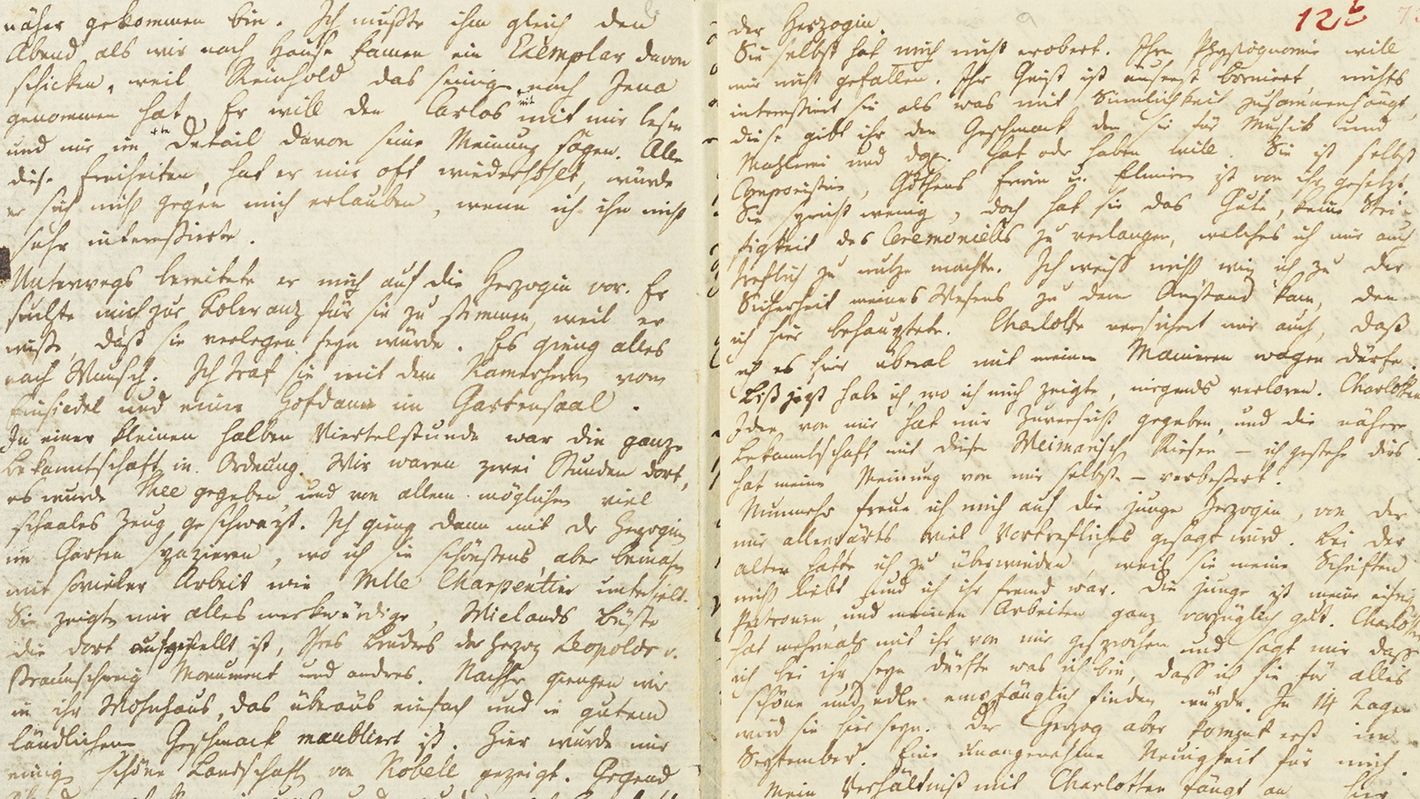 näher gekommen bin. Ich mußte ihm gleich den
Abend als wir nach Hause kamen ein Exemplar davon
schicken, weil Reinhold das seinige nach Jena
genommen hat. Er will den Carlos mit mir lesen
und mir im Detail davon seine Meinung sagen. Alle
diese Freiheiten, hat er mir oft wiederhohlt, würde
er sich nicht gegen mich erlauben, wenn ich ihn nicht
sehr interessierte.
Unterwegs bereitete er mich auf die Herzogin vor. Er
suchte mich zur Toleranz für sie zu stimmen, weil er
wisse, daß sie verlegen seyn würde. Es gieng alles
nach Wunsch. Ich traf sie mit dem Kammerherrn von
Einsiedel und einer Hofdame im Gartensaal.
In einer kleinen halben Viertelstunde war die ganze
Bekanntschaft in Ordnung. Wir waren zwei Stunden dort,
es wurde Thee gegeben und von allem möglichen viel
schaales Zeug geschwazt. Ich gieng dann mit der Herzogin
im Garten spazieren, wo ich sie schönstens aber beinahe
mit sovieler Arbeit wie Mlle Charpentier unterhielt.
Sie zeigte mir alles merkwürdige, Wielands Büste
die dort aufgestellt ist, Ihres Bruders des Herzog Leopolds v.
Braunschweig Monument und andres. Nachher giengen wir
in ihr Wohnhaus, das überaus einfach und in gutem
ländlichem Geschmack meubliert ist. Hier wurden mir
einige schöne Landschaften von Kobell gezeigt. Gegend
der Herzogin. 12
Sie selbst hat mich nicht erobert. Ihre Physiognomie will
mir nicht gefallen. Ihr Geist ist äuserst borniert, nichts
interessiert sie als was mit Sinnlichkeit zusammenhängt,
diese gibt ihr den Geschmack den sie für Musik und
Mahlerei und dgl. hat oder haben will. Sie ist selbst
Componistin, Göthens Erwin u. Elmire ist von ihr gesetzt.
Sie spricht wenig, doch hat sie das Gute, keine Stei-
figkeit des Ceremoniells zu verlangen, welches ich mir auch
treflich zu nutze machte. Ich weiss nicht wie ich zu der
Sicherheit meines Wesens, zu dem Anstand kam, den
ich hier behauptete. Charlotte versichert mir auch, daß
ich es hier überal mit meinen Manieren wagen dürfe.
Biß jezt habe ich, wo ich mich zeigte, nirgends verloren. Charlottens
Idee von mir hat mir Zuversicht gegeben, und die nähere
Bekanntschaft mit diesen Weimarischen Riesen – ich gestehe dirs –
hat meine Meinung von mir selbst – verbessert.
Nunmehr freue ich mich auf die junge Herzogin, von der
mir allerwärts viel Vortrefliches gesagt wird. Bei der
alten hatte ich zu überwinden, weil sie meine Schriften
nicht liebt, und ich ihr fremd war. Die junge ist meine eifrige
Patronin, und meinen Arbeiten ganz vorzüglich gut. Charlotte
hat mehrmals mit ihr von mir gesprochen und sagt mir daß
ich bei ihr seyn dürfte was ich bin, daß ich sie für alles
schöne und edle empfänglich finden würde. In 14 Tagen
wird sie hier seyn. Der Herzog aber kommt erst im
September. Eine unangenehme Neuigkeit für mich.
Mein Verhältniß mit Charlotten fängt an hier